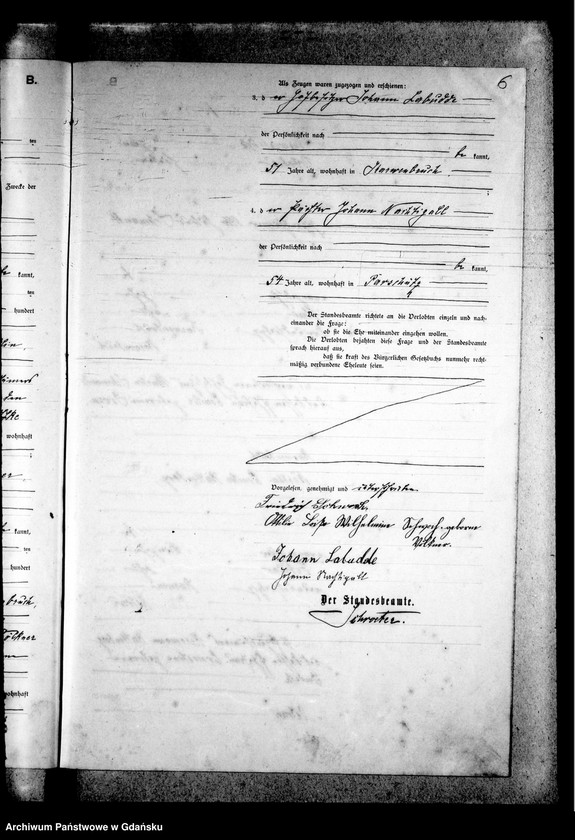 B.
6
ten
Zwecke der
kannt,
ten
hundert
wohnhaft
kannt,
ten
hundert
wohnhaft
Als Zeugen waren zugezogen und erschienen:
3. d er Hofbesitzer Johann Labudde
der Persönlichkeit nach
be kannt,
51 Jahre alt, wohnhaft in Karwenbruch
;
4. d er Pächter Johann Nachtigall
der Persönlichkeit nach
be kannt,
54 Jahre alt, wohnhaft in Parschütz
Der Standesbeamte richtete an die Verlobten einzeln und nach-
einander die Frage:
ob sie die Ehe miteinander eingehen wollen.
Die Verlobten bejahten diese Frage und der Standesbeamte
sprach hierauf aus,
daß sie kraft des Bürgerlichen Gesetzbuchs nunmehr recht-
mäßig verbundene Eheleute seien.
Vorgelesen, genehmigt und unterschrieben
Friedrich
Wilhelmine geborne
Johann Labudde
Johann Nachtigall
Der Standesbeamte.
Schroeter.
Archiwum Państwowe w Gdańsku